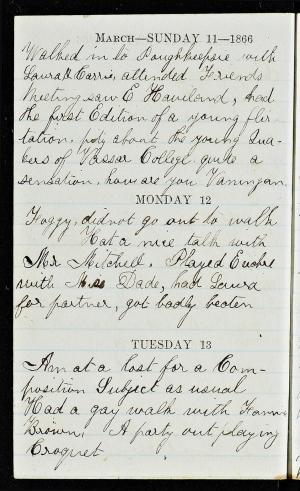 MARCH—SUNDAY 11—1866
Walked in to Poughkeepsie with
Laura & Carrie, attended Friends
Meeting saw E Haviland, had
the first Edition of a young flir
tation, pdy about the young Qua-
kers of Vassar College quite a
sensation, how are you Vaningan.
MONDAY 12
Foggy, did not go out to walk
Had a nice talk with
Mr Mitchell. Played Euchre
with Miss Dade, had Laura
for partner, got badly beaten
TUESDAY 13
Am at a lost for a Com-
position Subject as usual
Had a gay walk with Fannie
Brown, A party out playing
Croquet